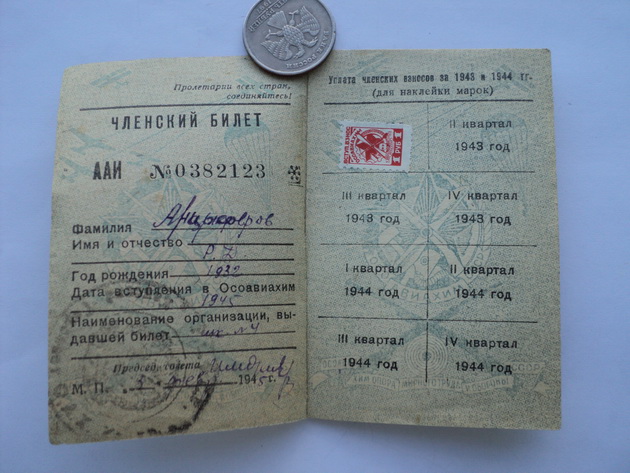 Пролетарии всех стран,
соединяйтесь!
ЧЛЕНСКИЙ БИЛЕТ
ААИ №0382123
Фамилия Анцыферов
Имя и отчество
Р. Д
Год рождения 1932
Дата вступления в Осоавиахим
1945
Наименование организации, вы-
давшей билет шк №4
Председатель
М. П. 1945г.
Уплата членских взносов за 1943 и 1944 гг.
(для наклейки марок)
1 РУБ 1
II квартал
1943 год
III квартал
1943 год
IV квартал
1943 год
I квартал
1944 год
II квартал
1944 год
III квартал
1944 год
IV квартал
1944 год